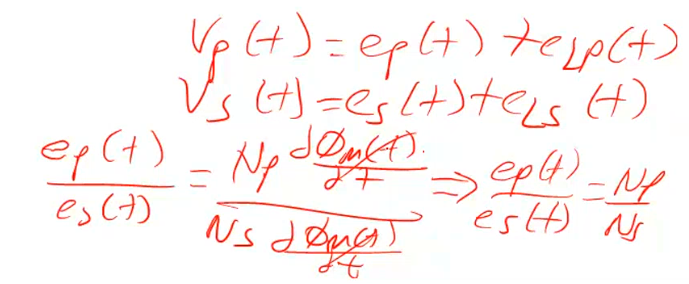 Vp (t) = ep (t) + eLp (t)
Vs (t) = es (t) + eLs (t)
ep (t) / es (t) = Np dΦm(t)/dt / Ns dΦm(t)/dt ⇒ ep(t) / es(t) = Np / Ns